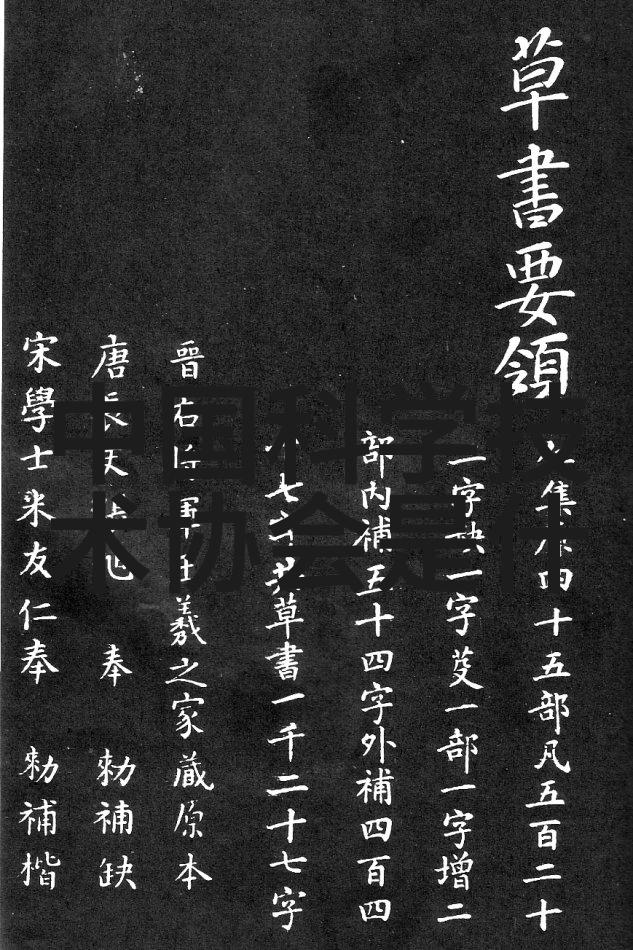 草書要領
集 四十五部凡五百二十
一字 一字 一部一字增二
部内補五十四字外補四百四
十七字 草書一千二十七字
晉右 軍王羲之家藏原本
唐 奉 勑補缺
宋學士米友仁奉 勑補楷
中国科学技
术协会是什